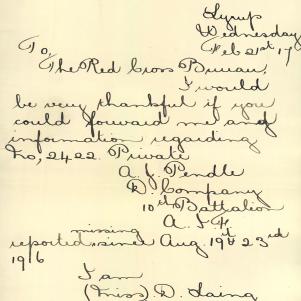 Lyrup
Wednesday
Feb 21st 17
To,
The Red Cross Bureau,
I would
be very thankful if you
could forward me and
information regarding
No, 2422. Private
A. J. Pendle
D. Company
10th Battalion
A. I. F
missing
reported since Aug. 19th 23rd
1916
I am
(Miss) D. Laing